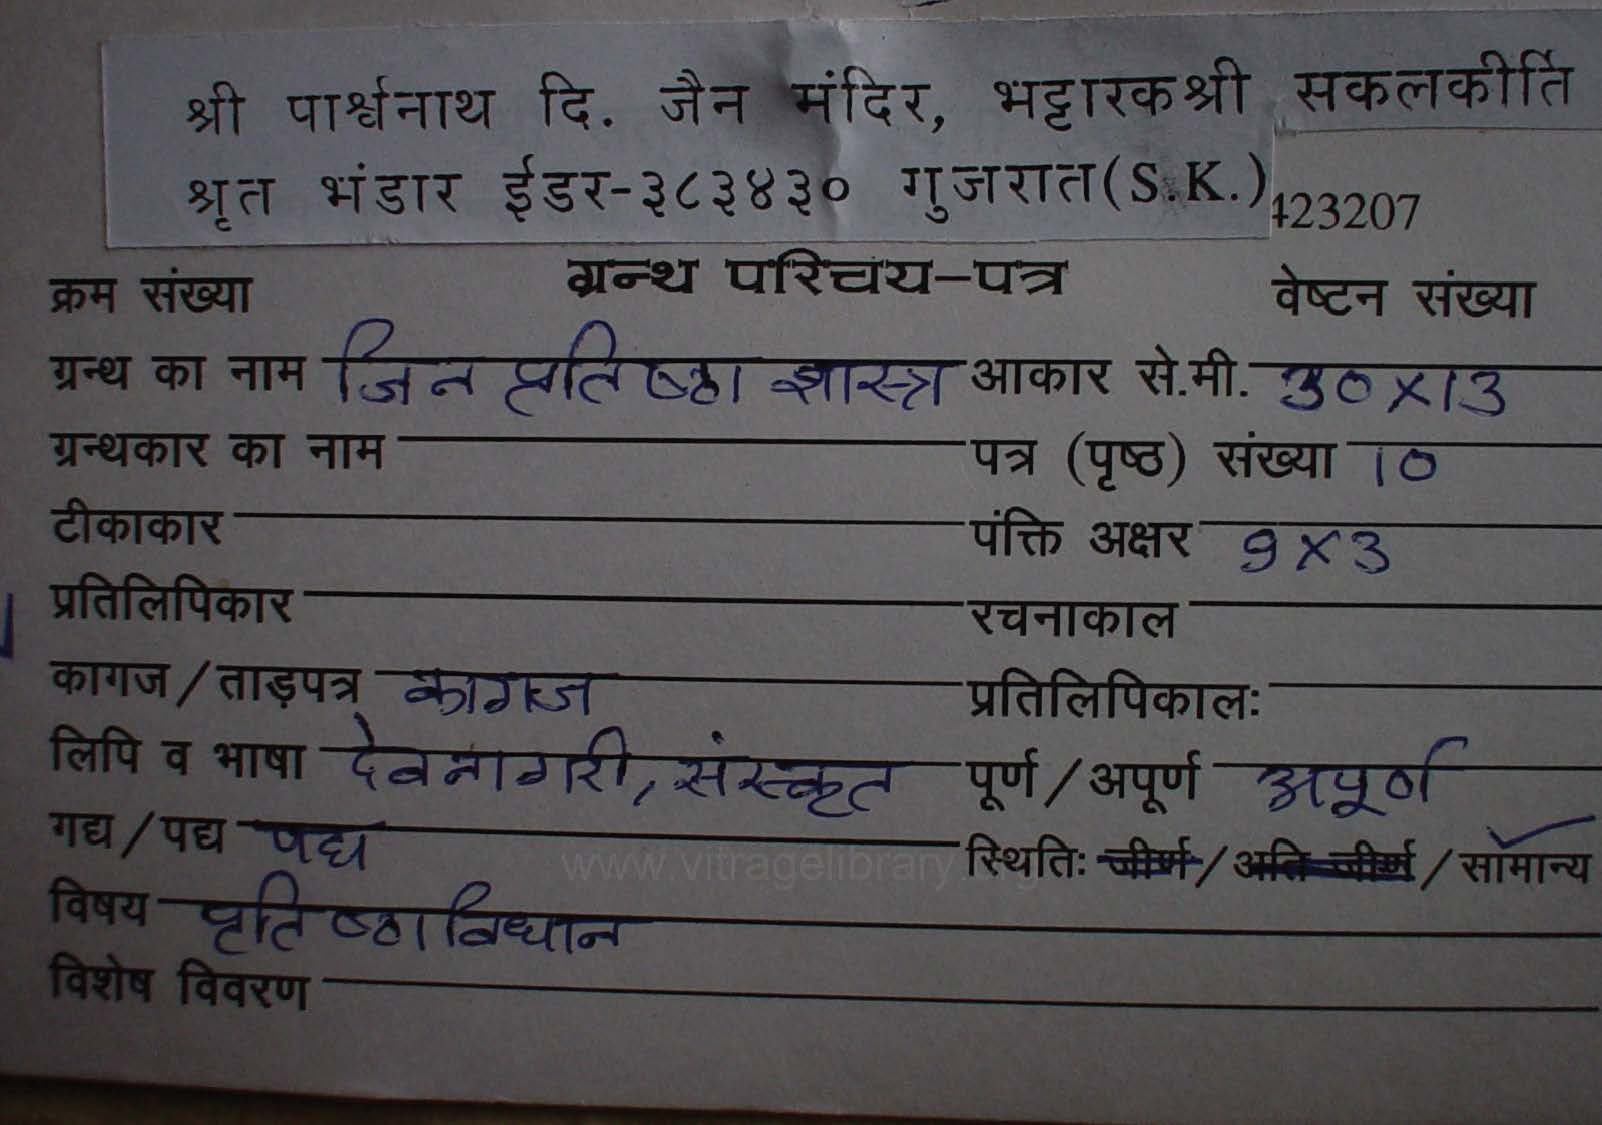 श्री पार्श्वनाथ दि. जैन मंदिर, भट्टारकश्री सकलकीर्ति
श्रृत भंडार ईडर-३८३४३० गुजरात(S.K.) 423207
क्रम संख्या ग्रन्थ परिचय-पत्र वेष्टन संख्या
ग्रन्थ का नाम जिन प्रतिष्ठा शास्त्र आकार से.मी. 30×13
ग्रन्थकार का नाम पत्र (पृष्ठ) संख्या 10
टीकाकार पंक्ति अक्षर 9×3
प्रतिलिपिकार रचनाकाल
कागज/ताड़पत्र कागज प्रतिलिपिकालः
लिपि व भाषा देवनागरी, संस्कृत पूर्ण/अपूर्ण अपूर्ण
गद्य/पद्य पद्य स्थितिः जीर्ण/अति जीर्ण/सामान्य
www.vitragelibrary.org
विषय प्रतिष्ठाविधान
विशेष विवरण